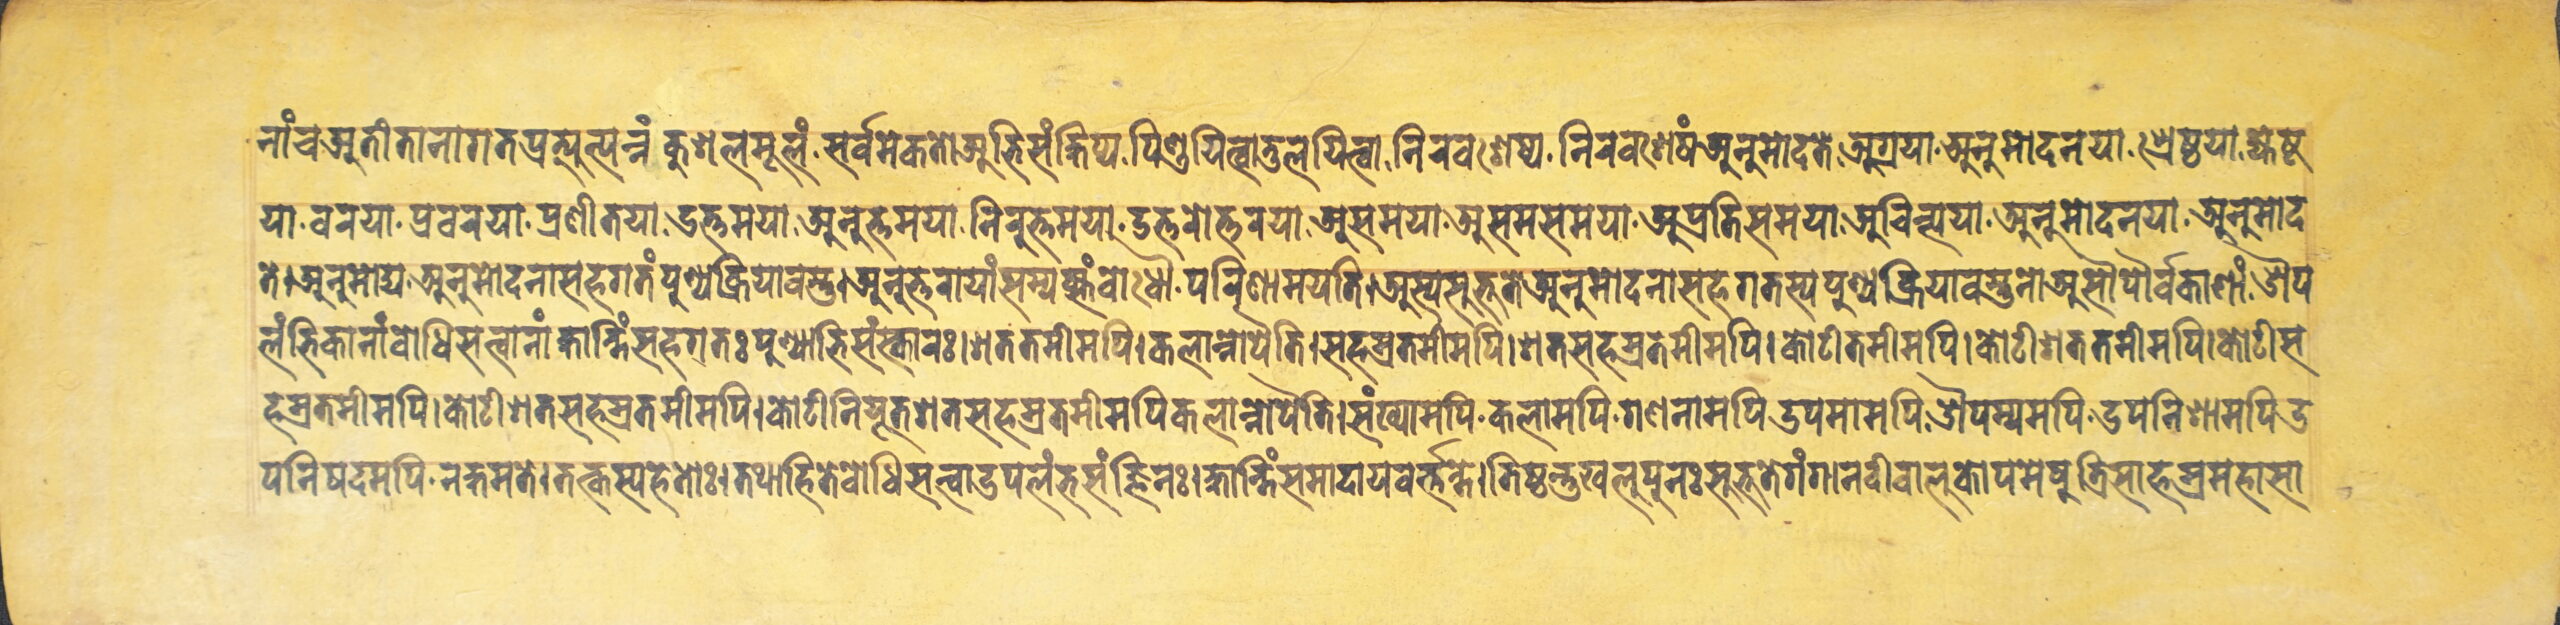 नां च अतीतानागतप्रत्युत्पन्नं कुशलमूलं. सर्वमेकतो अभिसंक्षिप्य. पिण्डयित्वा तुलयित्वा. निरवशेष्य. निरवशेषं अनुमोदते. अग्रया. अनुमोदनया. श्रेष्ठया. ज्येष्ठ
या. वरया. प्रवरया. प्रणीतया. उत्तमया. अनुत्तमया. निरुत्तमया. उत्तरोत्तरया. असमया. असमसमया. अप्रतिसमया. अचिन्त्यया. अनुमोदनया. अनुमोद
ते। अनुमोद्य. अनुमोदनासहगतं पुण्यक्रियावस्तु। अनुत्तरायां सम्यक्सं बोधौ. परिणामयति। अस्य सुभूते अनुमोदनासहगतस्य पुण्यक्रियावस्तुनो असौ पौर्वकाणां. औप
लंभिकानां बोधिसत्वानां क्षान्तिसहगतः पुण्याभिसंस्कारः। शततमीमपि। कलान्नोपैति। सहस्रतमीमपि। शतसहस्रतमीमपि। कोटीतमीमपि। कोटीशततमीमपि। कोटीस
हस्रतमीमपि। कोटीशतसहस्रतमीमपि। कोटीनियूतशतसहस्रतमीमपि कलान्नोपैति। संख्यामपि. कलामपि. गणनामपि उपमामपि. औपम्यमपि. उपनिशामपि उ
पनिषदमपि. न क्षमते। तत्कस्य हेतोः। तथा हि ते बोधिसत्वा उपलंभसंज्ञिनः। क्षान्तिं समादाय वर्त्तन्ते। तिष्ठन्तु खलु पुनः सुभूते गंगानदीवालुकोपमेषु त्रिसाहस्रमहासा